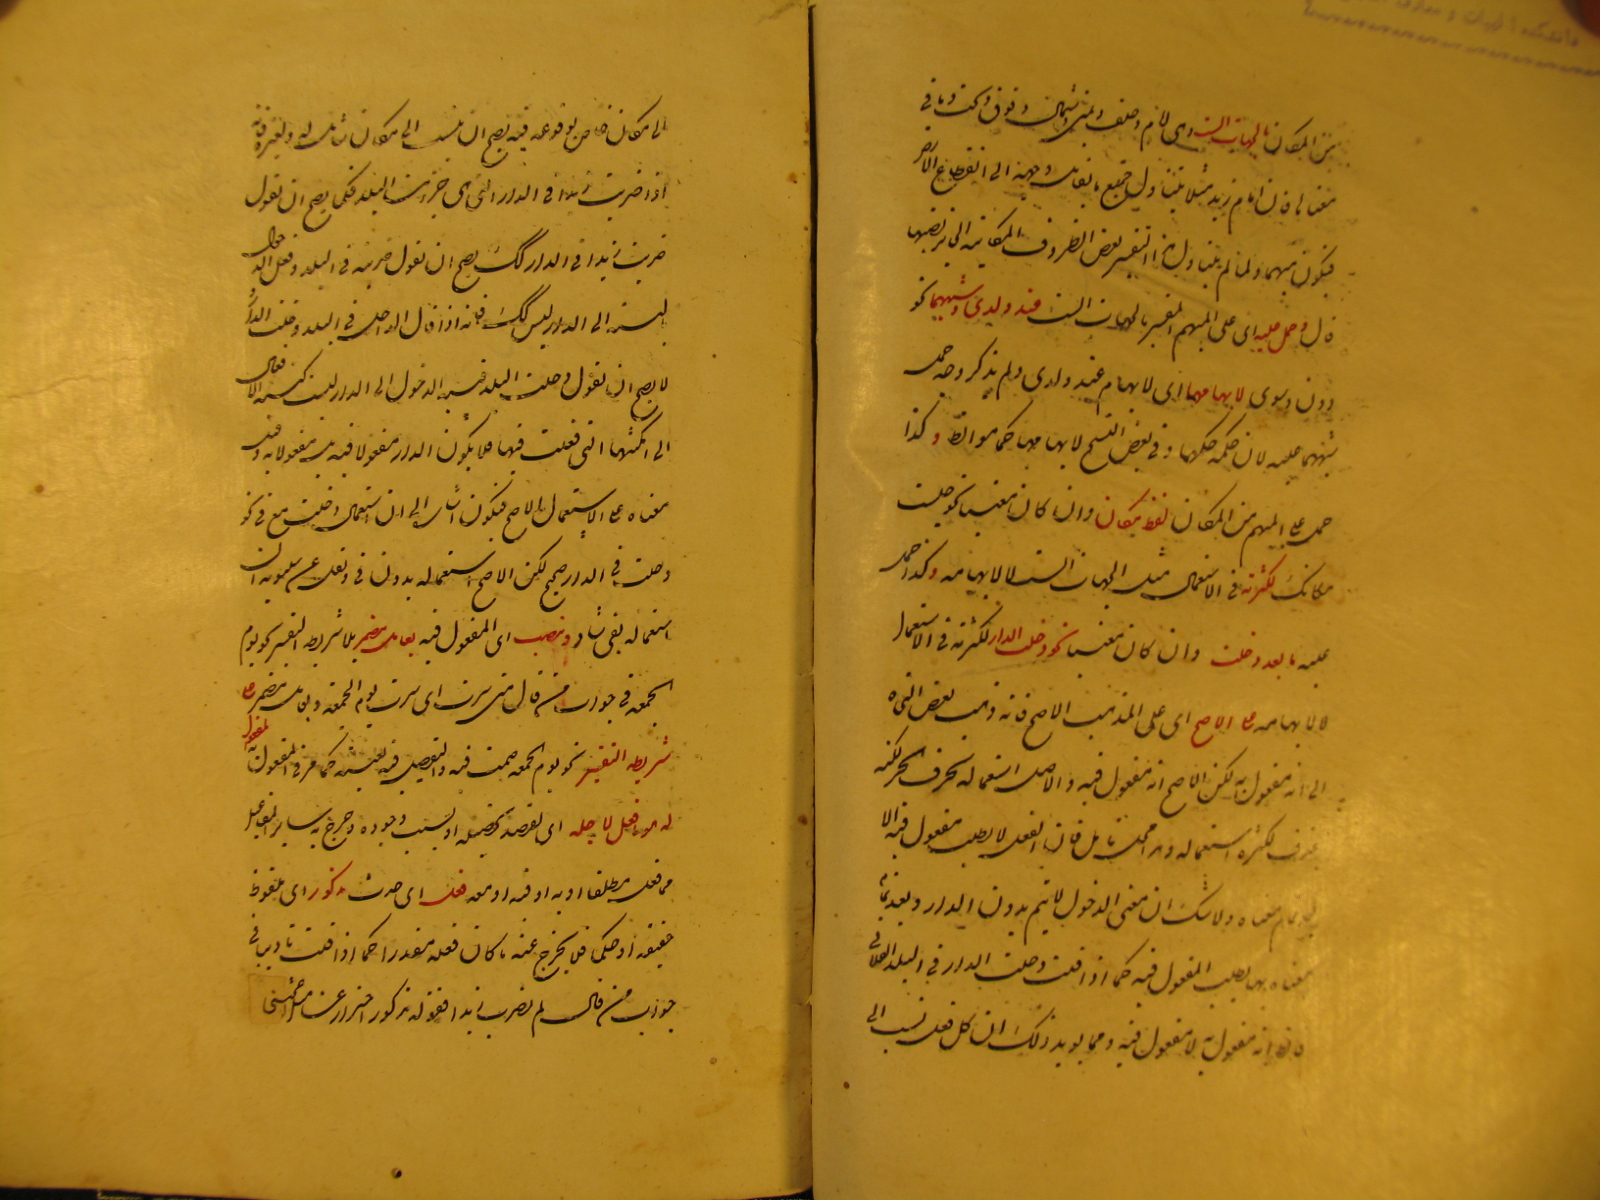 دانشکده ادبیات و معارف
من المكان بالجهات الست وهى امام وخلف ويمين وشمال وفوق وتحت وما فى
معناها فان امام زيد مثلا يتناول جميع ما يقابل وجهه الى انقطاع الارض
فيكون مبهما ولما لم يتناول هذا التفسير بعض الظروف المكانية الجائز نصبها
قال وحمل عليه اى على المبهم المفسر بالجهات الست عند ولدى وشبههما نحو
دون وسوى لابهامهما اى لابهام عند ولدى ولم يذكر وجه حمل
شبههما عليه لان حكمه حكمهما وفى بعض النسخ لابهامها كما هو الظ وكذا
حمل على المبهم من المكان لفظ مكان وان كان معينا نحو جلست
مكانك لكثرته فى الاستعمال مثل الجهات الست لا لابهامه وكذا حمل
عليه ما بعد دخلت وان كان معينا نحو دخلت الدار لكثرته فى الاستعمال
لا لابهامه على الاصح اى على المذهب الاصح فانه ذهب بعض النحاة
الى انه مفعول به لكن الاصح انه مفعول فيه والاصل استعماله بحرف الجر لكنه
حذف لكثرة استعماله وهذا محل تامل فان الفعل لا يطلب مفعول فيه الا
بعد تمام معناه ولا شك ان معنى الدخول لا يتم بدون الدار وبعد تمام
معناه بها يطلب المفعول فيه كما اذا قلت دخلت الدار فى البلد الفلانى
فالظ انه مفعول به لا مفعول فيه ومما يويد ذلك ان كل فعل نسب الى
الى مكان خاص بوقوعه فيه يصح ان ينسب الى مكان شامل له ولغيره فانه
اذا ضربت زيدا فى الدار التى هى جزء من البلد فكما يصح ان تقول
ضربت زيدا فى الدار كك يصح ان تقول ضربته فى البلد وفعل الدخول
بالنسبة الى الدار ليس كك فانه اذا قال الداخل فى البلد دخلت الدار
لا يصح ان تقول دخلت البلد فنسبة الدخول الى الدار ليست كنسبة الافعال
الى امكنتها التى فعلت فيها فلا يكون الدار مفعولا فيه بل مفعولا به وقيل
معناه على الاستعمال الاصح فيكون اشارة الى ان استعمال دخلت مع فى نحو
دخلت فى الدار صحيح لكن الاصح استعماله بدون فى ونقل عن سيبويه ان
استعماله بفى شاذ وينصب اى المفعول فيه بعامل مضمر بلا شريطة التفسير نحو يوم
الجمعة فى جواب من قال متى سرت اى سرت يوم الجمعة وبعامل مضمر على
شريطة التفسير نحو يوم الجمعة صمت فيه والتفصيل فيه بعينه كما مر فى المفعول به المفعول
له هو ما فعل لاجله اى لقصد تحصيله او بسبب وجوده وخرج به سائر المفاعيل
مما فعل مطلقا او به او فيه او معه فعل اى حدث مذكور اى ملفوظ
حقيقة او حكما فلا يخرج عنه ما كان فعله مقدرا كما اذا قلت تاديبا فى
جواب من قال لم ضربت زيدا فقوله مذكور احتراز عن مثل اعجبنى